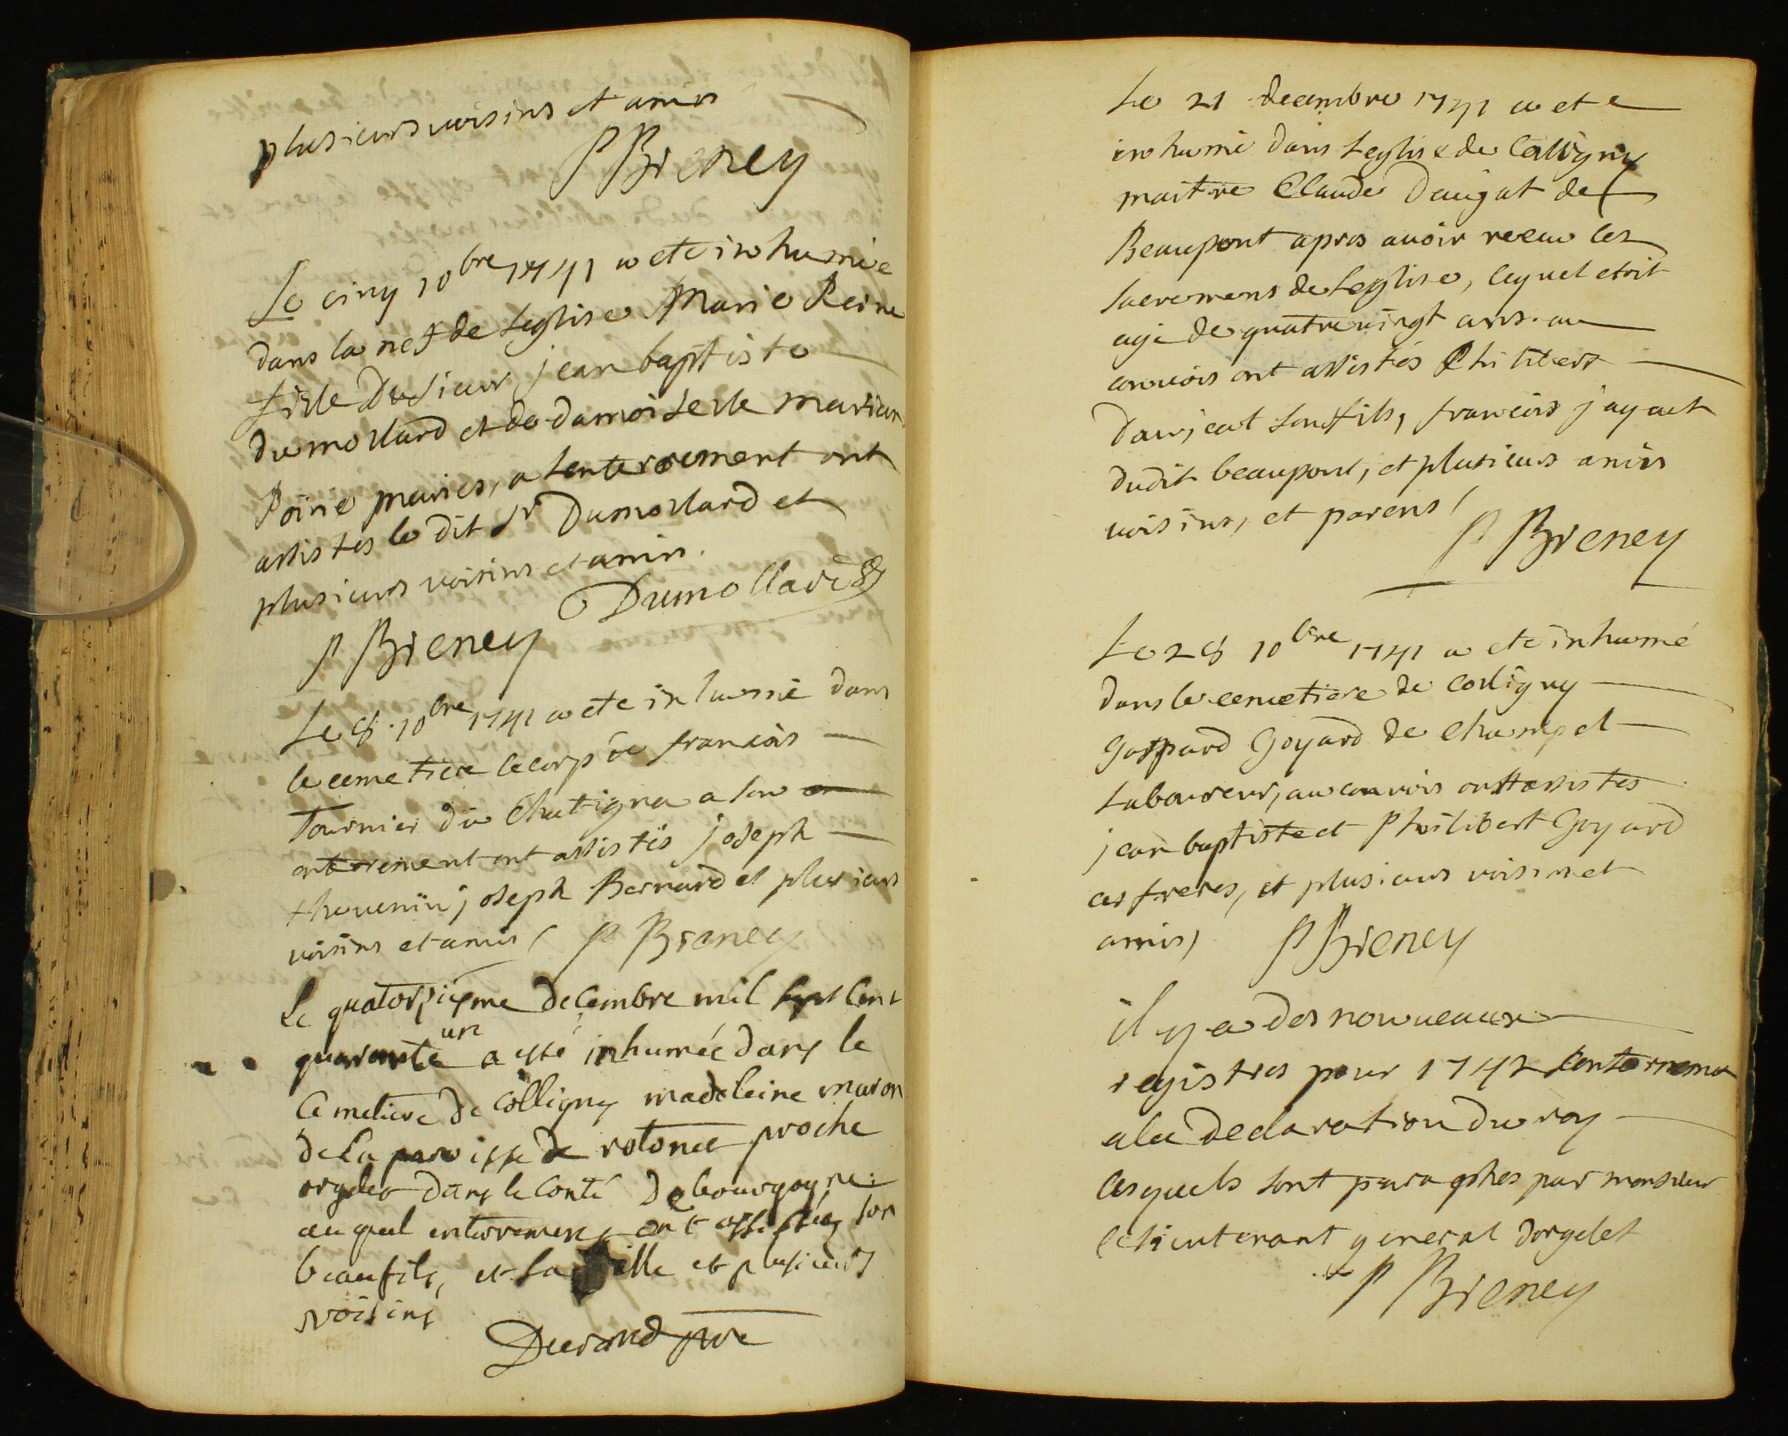 plusieurs voisins et amis
P Breney
Le cinq 10bre 1741 a ete inhumée
dans la nef de Leglise Marie Reine
fille Du Sieur jean baptiste
Dumollard et de damoiselle
Poirie mariés, a Lenterrement ont
assistes le dit Sr Dumollard et
plusieurs voisins et amis.
Dumollard
P Breney
Le 8. 10bre 1741 a ete inhumé dans
le cemetiere le corp de francois
Tournier du Chatigna a son en
enterement ont assistés joseph
thevenin joseph Bernard et plusieurs
voisins et amis P Breney
Le quatorzieme decembre mil sept cent
quarante un a esté inhumée dans le
Cemetiere de Colligny madeleine
de La paroisse de rotonet proche
orgelet dans le Conté De bourgogne
auquel enterrement ont assistés son
beaufils, et sa fille et plusieurs
voisins
Durand ptre
Le 21 decembre 1741 a ete
inhumé dans Leglise de Colligny
maitre Claude Daujat de
Beaupont apres avoir receu les
sacremens de Leglise, lequel etoit
agé de quatre vingt ans. au
convois ont assistés Philibert
Daujeat son fils, francois jayact
dudit beaupont, et plusieurs amis
voisins, et parens
P Breney
Le 28 10bre 1741 a ete inhumé
dans le cemetiere de colligny
gaspard Goyard de Champel
Laboureur, au convois ont assistés
jean baptiste et Philibert Goyard
ces freres, et plusieurs voisins et
amis,
P Breney
il y a des nouveaux
registres pour 1742 conformement
a la Declaration du roy
lesquels sont paraphes par monsieur
le lieutenant general dorgelet
P Breney